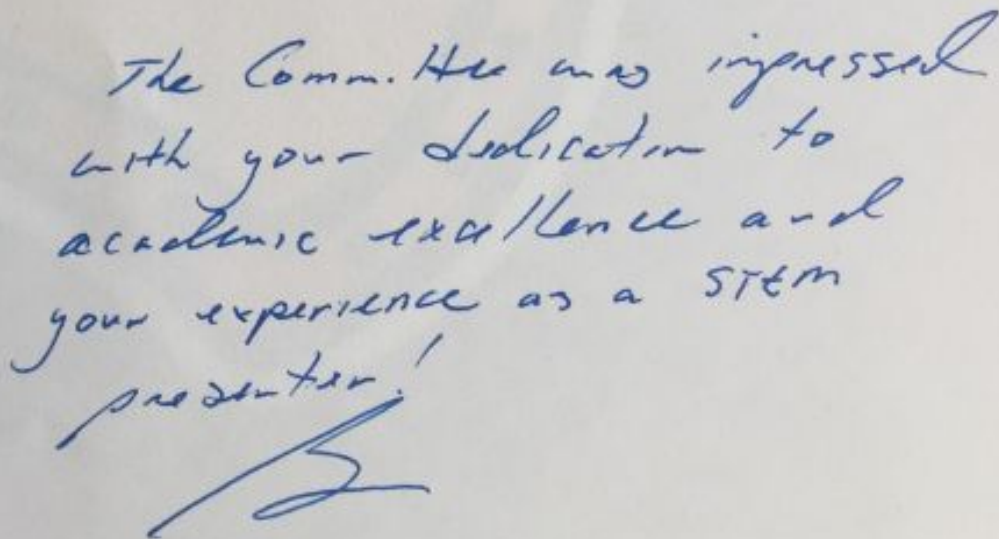 The Committee was impressed
with your dedication to
academic excellence and
your experience as a STEM
presenter!